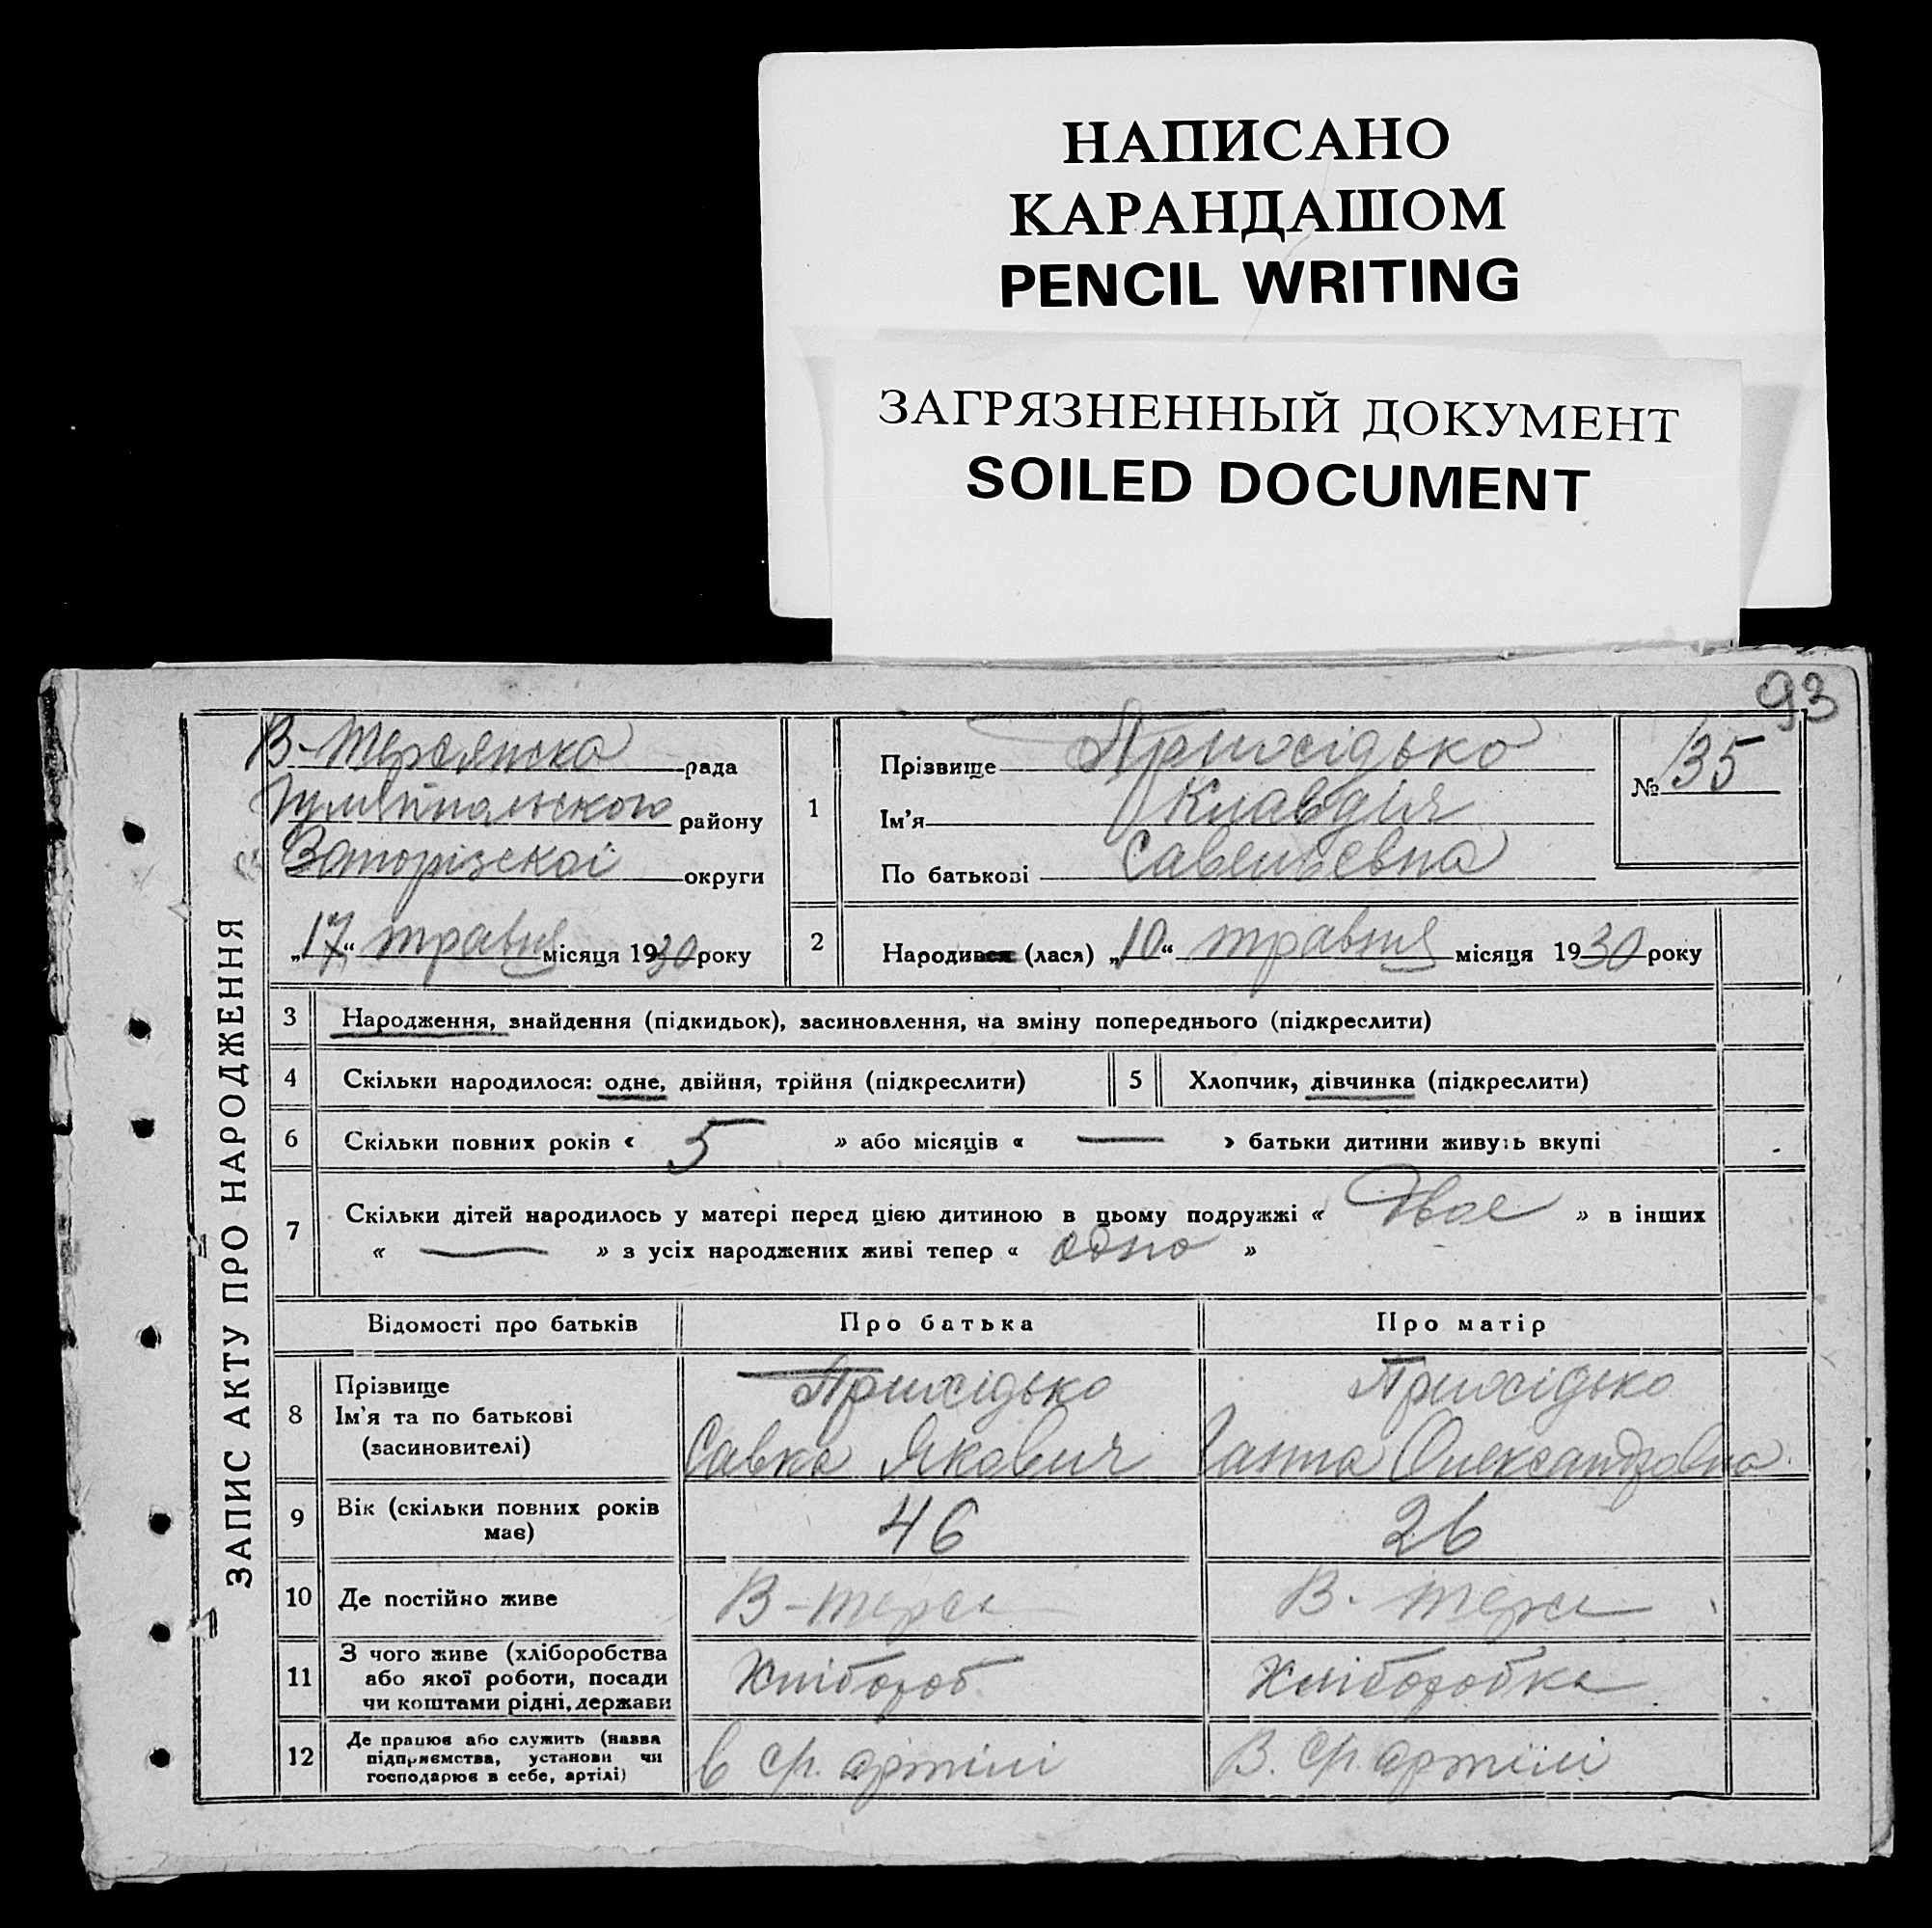 НАПИСАНО
КАРАНДАШОМ
PENCIL WRITING
ЗАГРЯЗНЕННЫЙ ДОКУМЕНТ
SOILED DOCUMENT
93
ЗАПИС АКТУ ПРО НАРОДЖЕННЯ
В-Терсянска рада
Гуляйпальского району
Запорізскоі округи
„17“ травня місяця 1930 року
1
Прізвище Прихідько
Ім'я Клавдія
По батькові Савельевна
№ 135
2 Народився (лася) „10“ травня місяця 1930 року
3 Народження, знайдення (підкидьок), засиновлення, на зміну попереднього (підкреслити)
4 Скільки народилося: одне, двійня, трійня (підкреслити) 5 Хлопчик, дівчинка (підкреслити)
6 Скільки повних років « 5 » або місяців « — » батьки дитини живуть вкупі
7 Скільки дітей народилось у матері перед цією дитиною в цьому подружжі « двое » в інших
« — » з усіх народжених живі тепер « одно »
Відомості про батьків Про батька Про матір
8 Прізвище
Ім'я та по батькові
(засиновителі)
Прихідько
Савка Якович
Прихідько
Ганна Олександровна
9 Вік (скільки повних років
має)
46 26
10 Де постійно живе В-Терса В. Терса
11 З чого живе (хліборобства
або якої роботи, посади
чи коштами рідні, держави
Хлібороб Хліборобка
12 Де працює або служить (назва
підприємства, установи чи
господарює в себе, артілі)
в ср. артілі В. ср. артілі